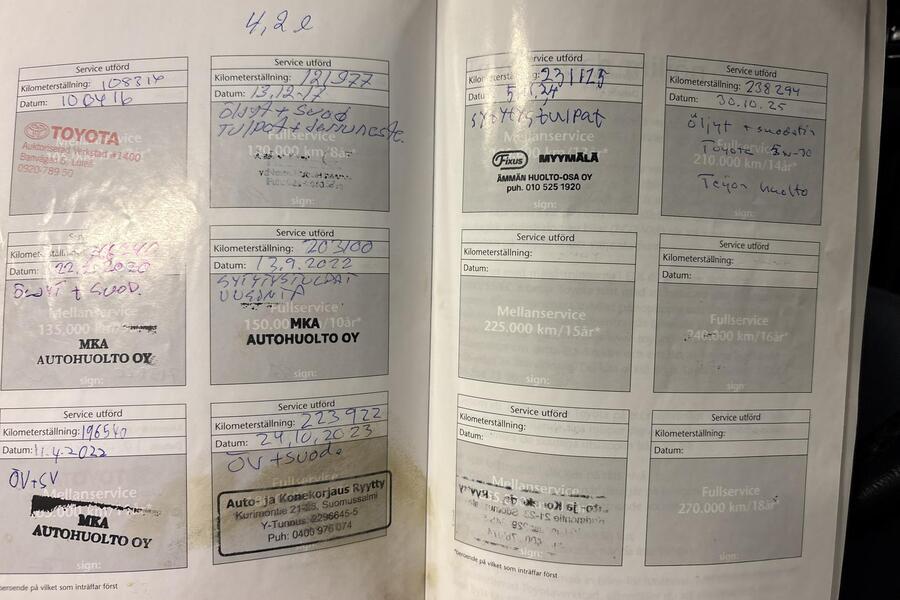 4,2 l
Service utförd
Kilometerställning: 108314
Datum: 100416
TOYOTA
Auktoriserad Verkstad #1400
0920-789 50
Service utförd
Kilometerställning: 121977
Datum: 13.12-17
Öljyt + Suod
Tulpat +
Fullservice
130.000 km/8år*
sign:
Kilomet
Datum: 2020
Öljyt + Suod.
Mellanservice
135.000
MKA
AUTOHUOLTO OY
Service utförd
Kilometerställning: 203100
Datum: 13.9.2022
SYTYTYSTULPAT
UUSINTA
Fullservice
150.000 km/10år*
MKA
AUTOHUOLTO OY
sign:
Service utförd
Kilometerställning: 196540
Datum: 11.4.2022
ÖV+SV
Mellanservice
MKA
AUTOHUOLTO OY
sign:
Service utförd
Kilometerställning: 223922
Datum: 24,10,2023
ÖV + suod.
Auto- ja Konekorjaus Ryytty
Kurimontie 21-23, Suomussalmi
Y-Tunnus: 2296645-5
Puh: 0400 976 074
sign:
på vilket som inträffar först
Service utförd
Kilometerställning: 231125
Datum:
Sytytystulpat
Mellanservice
Fixus MYYMÄLÄ
ÄMMÄN HUOLTO-OSA OY
puh. 010 525 1920
sign:
Service utförd
Kilometerställning: 238294
Datum: 30.10.25
Öljyt + suodatin
Toyota 5w-30
Fullservice
210.000 km/14år*
huolto
sign:
Service utförd
Kilometerställning:
Datum:
Mellanservice
225.000 km/15år*
sign:
Service utförd
Kilometerställning:
Datum:
Fullservice
240.000 km/16år*
sign:
Service utförd
Kilometerställning:
Datum:
Mellanservice
sign:
Service utförd
Kilometerställning:
Datum:
Fullservice
270.000 km/18år*
sign:
*beroende på vilket som inträffar först